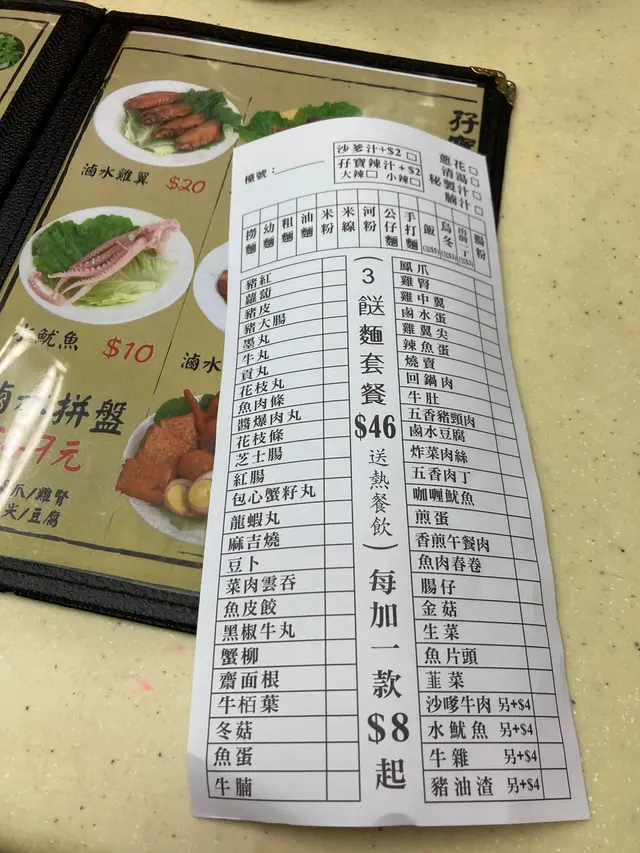 孖寶
滷水雞翼 $20
魷魚 $10
滷水
滷水拼盤
9元
爪/雞腎
/豆腐
檯號：
沙爹汁+$2
孖寶辣汁+$2
大辣 小辣
蔥花
清湯
秘製汁
腩汁
撈麵
幼麵
粗麵
油麵
米粉
米線
河粉
公仔麵
手打麵
飯
烏冬
腸粉
豬紅
蘿蔔
豬皮
豬大腸
墨丸
牛丸
貢丸
花枝丸
魚肉條
醬爆肉丸
花枝條
芝士腸
紅腸
包心蟹籽丸
龍蝦丸
麻吉燒
豆卜
菜肉雲吞
魚皮餃
黑椒牛丸
蟹柳
齋面根
牛栢葉
冬菇
魚蛋
牛腩
(3餸麵套餐$46送熱餐飲)每加一款$8起
鳳爪
雞腎
雞中翼
鹵水蛋
雞翼尖
辣魚蛋
燒賣
回鍋肉
牛肚
五香豬頸肉
鹵水豆腐
炸菜肉絲
五香肉丁
咖喱魷魚
煎蛋
香煎午餐肉
魚肉春卷
腸仔
金菇
生菜
魚片頭
韮菜
沙嗲牛肉 另+$4
水魷魚 另+$4
牛雜 另+$4
豬油渣 另+$4